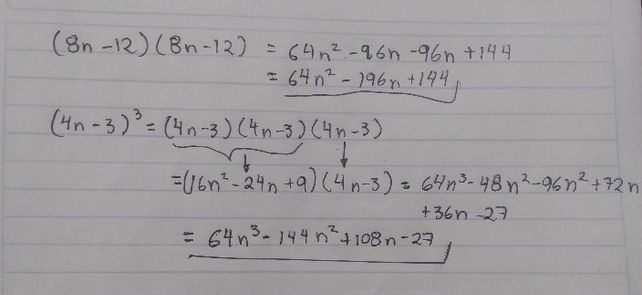 (8n-12)(8n-12) = 64n² - 96n - 96n + 144
= 64n² - 196n + 144
(4n-3)³ = (4n-3)(4n-3)(4n-3)
=(16n² - 24n + 9)(4n-3) = 64n³ - 48n² - 96n² + 72n
+36n - 27
= 64n³ - 144n² + 108n - 27